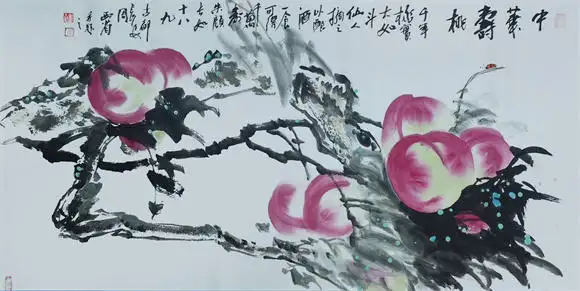 中華壽桃
千年
桃實
大如
斗
仙人
摘之
以釀
酒
一食
可得
千萬
壽
朱顏
長如
十八
九